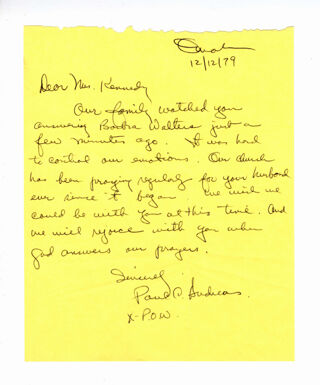 Omaha
12/12/79
Dear Mrs. Kennedy
Our family watched you
answering Barbra Walters just a
few minutes ago. It was hard
to control our emotions. Our church
has been praying regularly for your husband
ever since it began we wish we
could be with you at this time. And
we will rejoice with you when
God answers our prayers.
Sincerely
Paul C. Andreas
X-P.O.W.